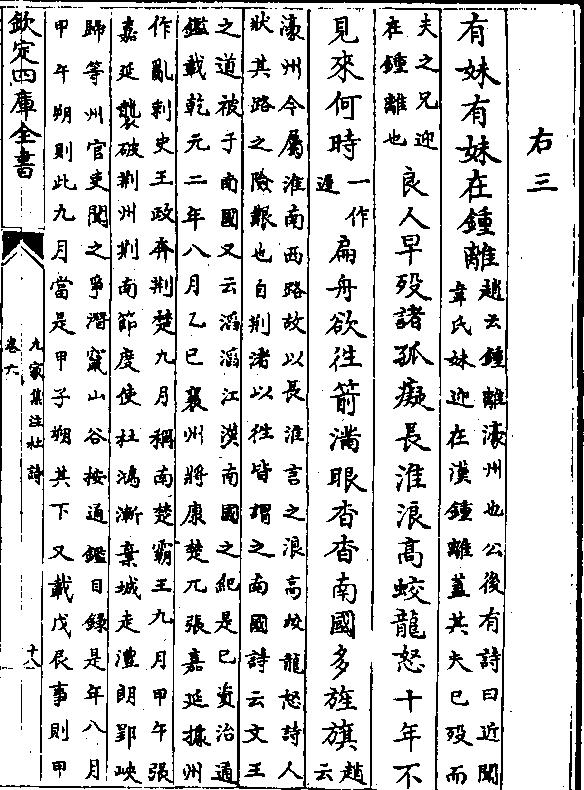 右三
有妹有妹在鍾離趙云鍾離濠州也公後有詩曰近聞
韋氏妹迎在漢鍾離蓋其夫已殁而
夫之兄迎
在鍾離也良人早殁諸孤癡長淮浪高蛟龍怒十年不
見來何時一作
遲扁舟欲往箭滿眼杳杳南國多旌旗趙
云
濠州今屬淮南西路故以長淮言之浪高蛟龍怒詩人
狀其路之險艱也自荆渚以往皆謂之南國詩云文王
之道被于南國又云滔滔江漢南國之紀是已資治通
鑑載乾元二年八月乙巳襄州將康楚元張嘉延據州
作亂刺史王政奔荆楚九月稱南楚霸王九月甲午張
嘉延襲破荆州荆南節度使杜鴻漸棄城走澧朗郢峽
歸等州官吏聞之爭潛竄山谷按通鑑目錄是年八月
甲午朔則此九月當是甲子朔其下又載戊辰事則甲
欽定四庫全書
九家集注杜詩
卷六
十八